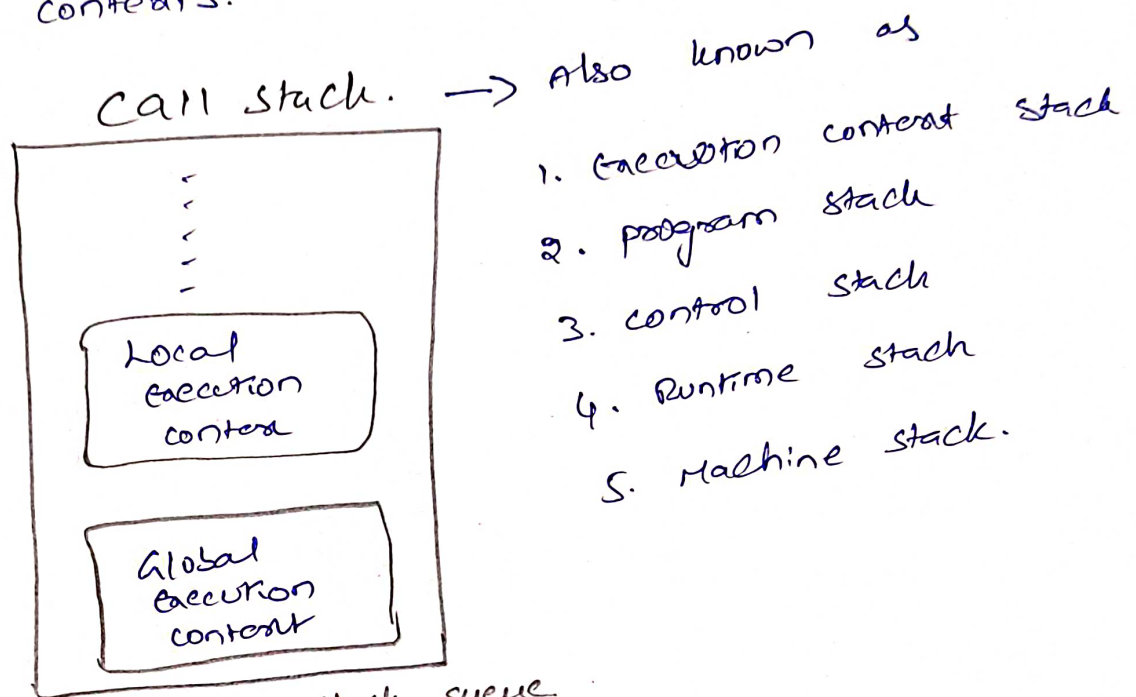 contexts.
Call stack. -> Also known as
1. Execution context stack
2. program stack
3. control stack
4. Runtime stack
5. Machine stack.
Local
execution
context
Global
execution
context
queue